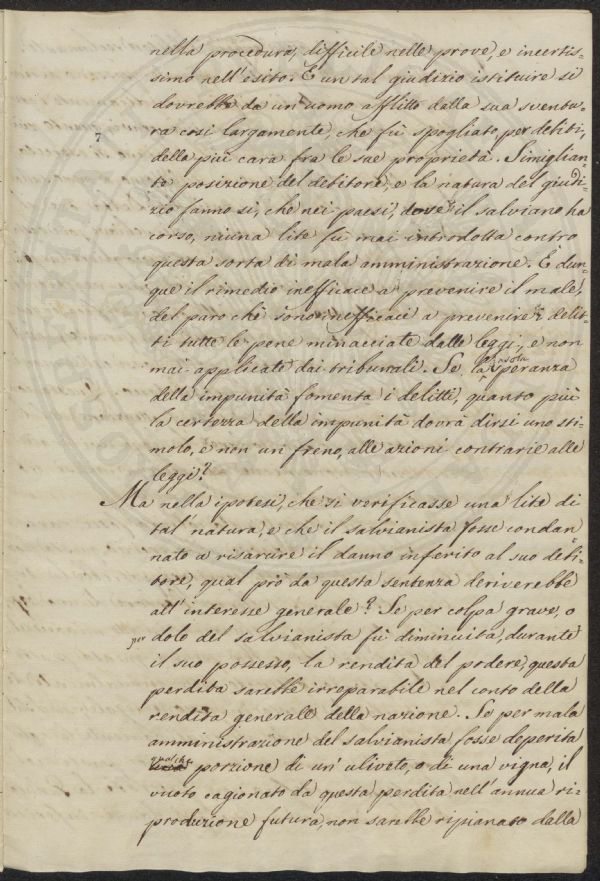 nella procedura, difficile nelle prove, e incertis-
simo nell'esito. E un tal giudizio istituire si
dovrebbe da un uomo afflitto dalla sua sventu-
ra così largamente, che fù spogliato, per debiti,
della più cara fra le sue proprietà. Simiglian-
te posizione del debitore, e la natura del giudi-
zio fanno sì, che nei paesi, dove il salviano ha
corso, niuna lite fù mai introdotta contro
questa sorta di mala amministrazione. È dun-
que il rimedio inefficace a prevenire il male,
del paro che sono inefficaci a prevenire i delit-
ti tutte le pene minacciate dalle leggi, e non
mai applicate dai tribunali. Se la sola speranza
della impunità fomenta i delitti, quanto più
la certezza della impunità dovrà dirsi uno sti-
molo, e non un freno, alle azioni contrarie alle
leggi?
Ma nella ipotesi, che si verificasse una lite di
tal natura, e che il salvianista fosse condan-
nato a risarcire il danno inferito al suo debi-
tore, qual prò da questa sentenza deriverebbe
all'interesse generale? Se per colpa grave, o
per dolo del salvianista fù diminuita, durante
il suo possesso, la rendita del podere, questa
perdita sarebbe irreparabile nel conto della
rendita generale della nazione. Se per mala
amministrazione del salvianista fosse deperita
qualche porzione di un'uliveto, o di una vigna, il
vuoto cagionato da questa perdita nell'annua ri-
produzione futura, non sarebbe ripianato dalla